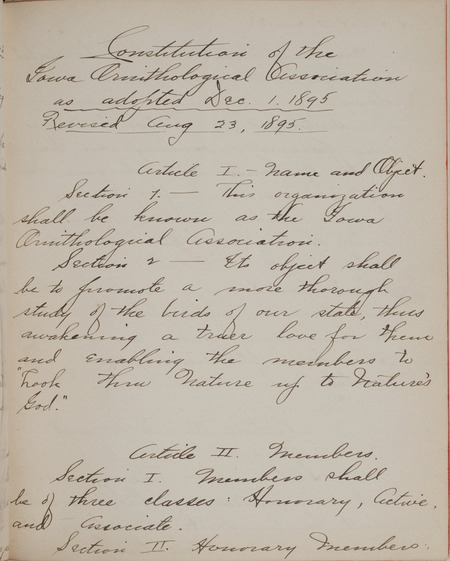 Constitution of the
Iowa Ornithological Association
as adopted Dec. 1. 1895
Revised Aug 23, 1895.
Article I. - Name and Object.
Section 1. — This organization
shall be known as the Iowa
Ornithological Association.
Section 2 — Its object shall
be to promote a more thorough
study of the birds of our state, thus
awakening a truer love for them
and enabling the members to
"Look thru Nature up to Nature's
God."
Article II. Members.
Section I. Members shall
be of three classes: Honorary, Active,
and Associate.
Section II. Honorary Members: